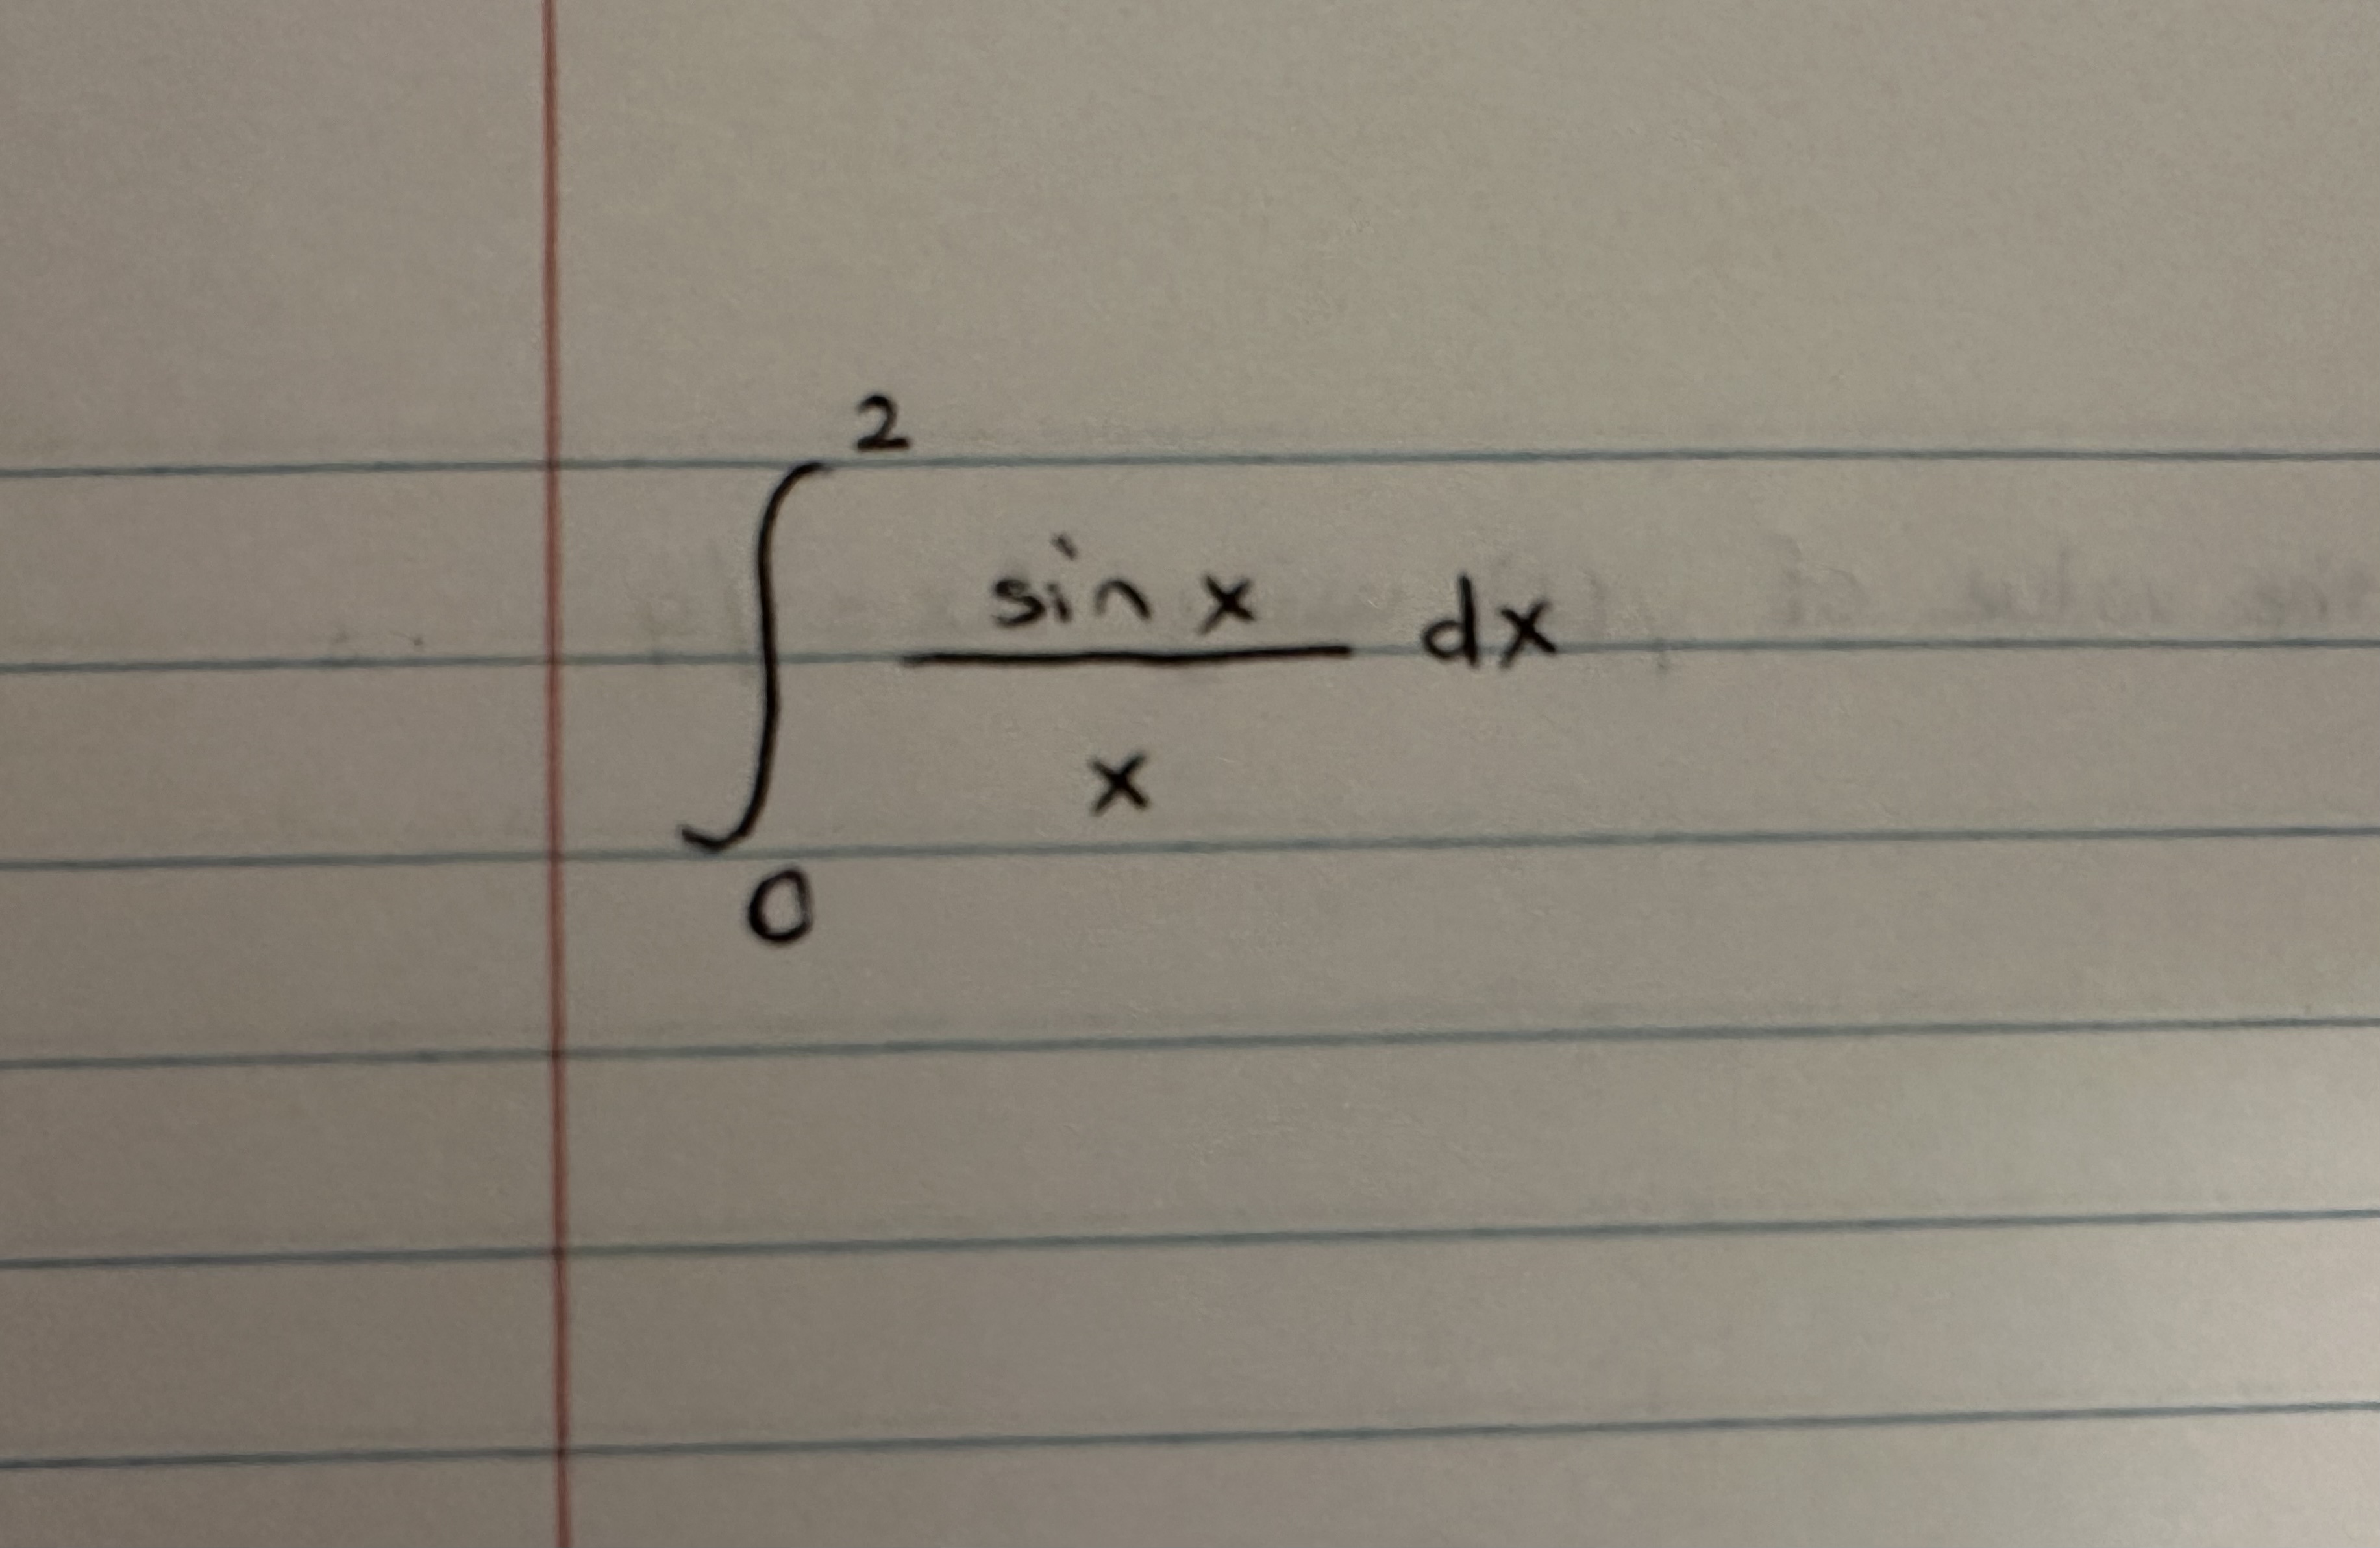 ∫₀² sin x / x dx